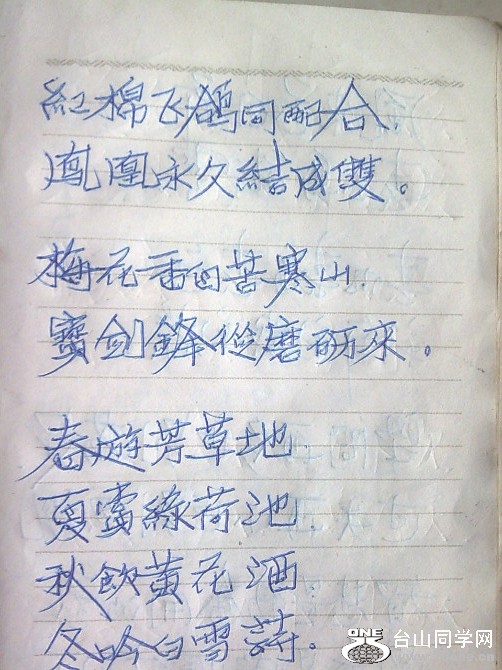 紅棉飞鴿同配合,
鳳凰永久結成雙。
梅花香自苦寒山.
寶劍鋒從磨砺來。
春遊芳草地.
夏賞綠荷池.
秋飲黃花酒.
冬吟白雪詩。
ONE 台山同学网